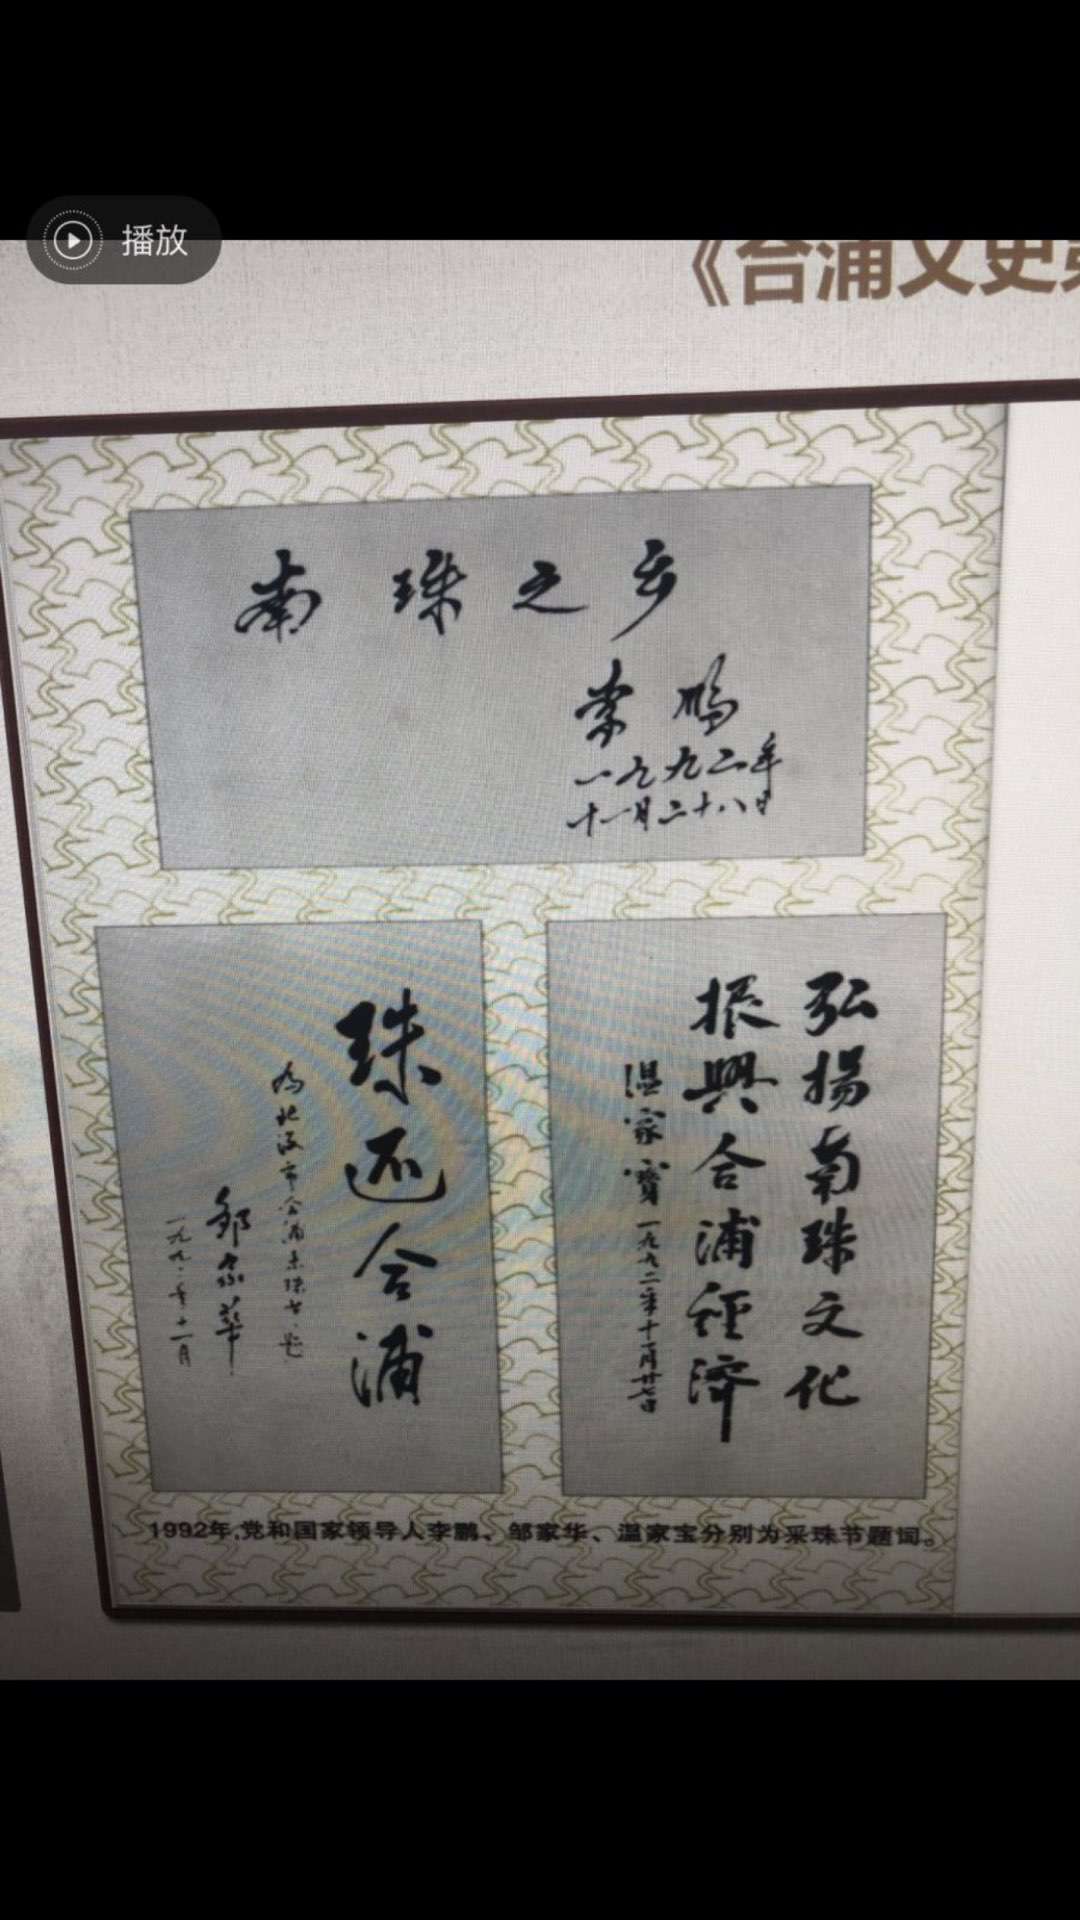 播放
《合浦文史
南珠之乡
李鹏
一九九二年
十一月二十八日
弘揚南珠文化
振興合浦経濟
温家寶 一九九二年十一月廿七日
珠还合浦
为北海市合浦
邹家华
十一月
1992年,党和国家领导人李鹏、邹家华、温家宝分别为采珠节题词。